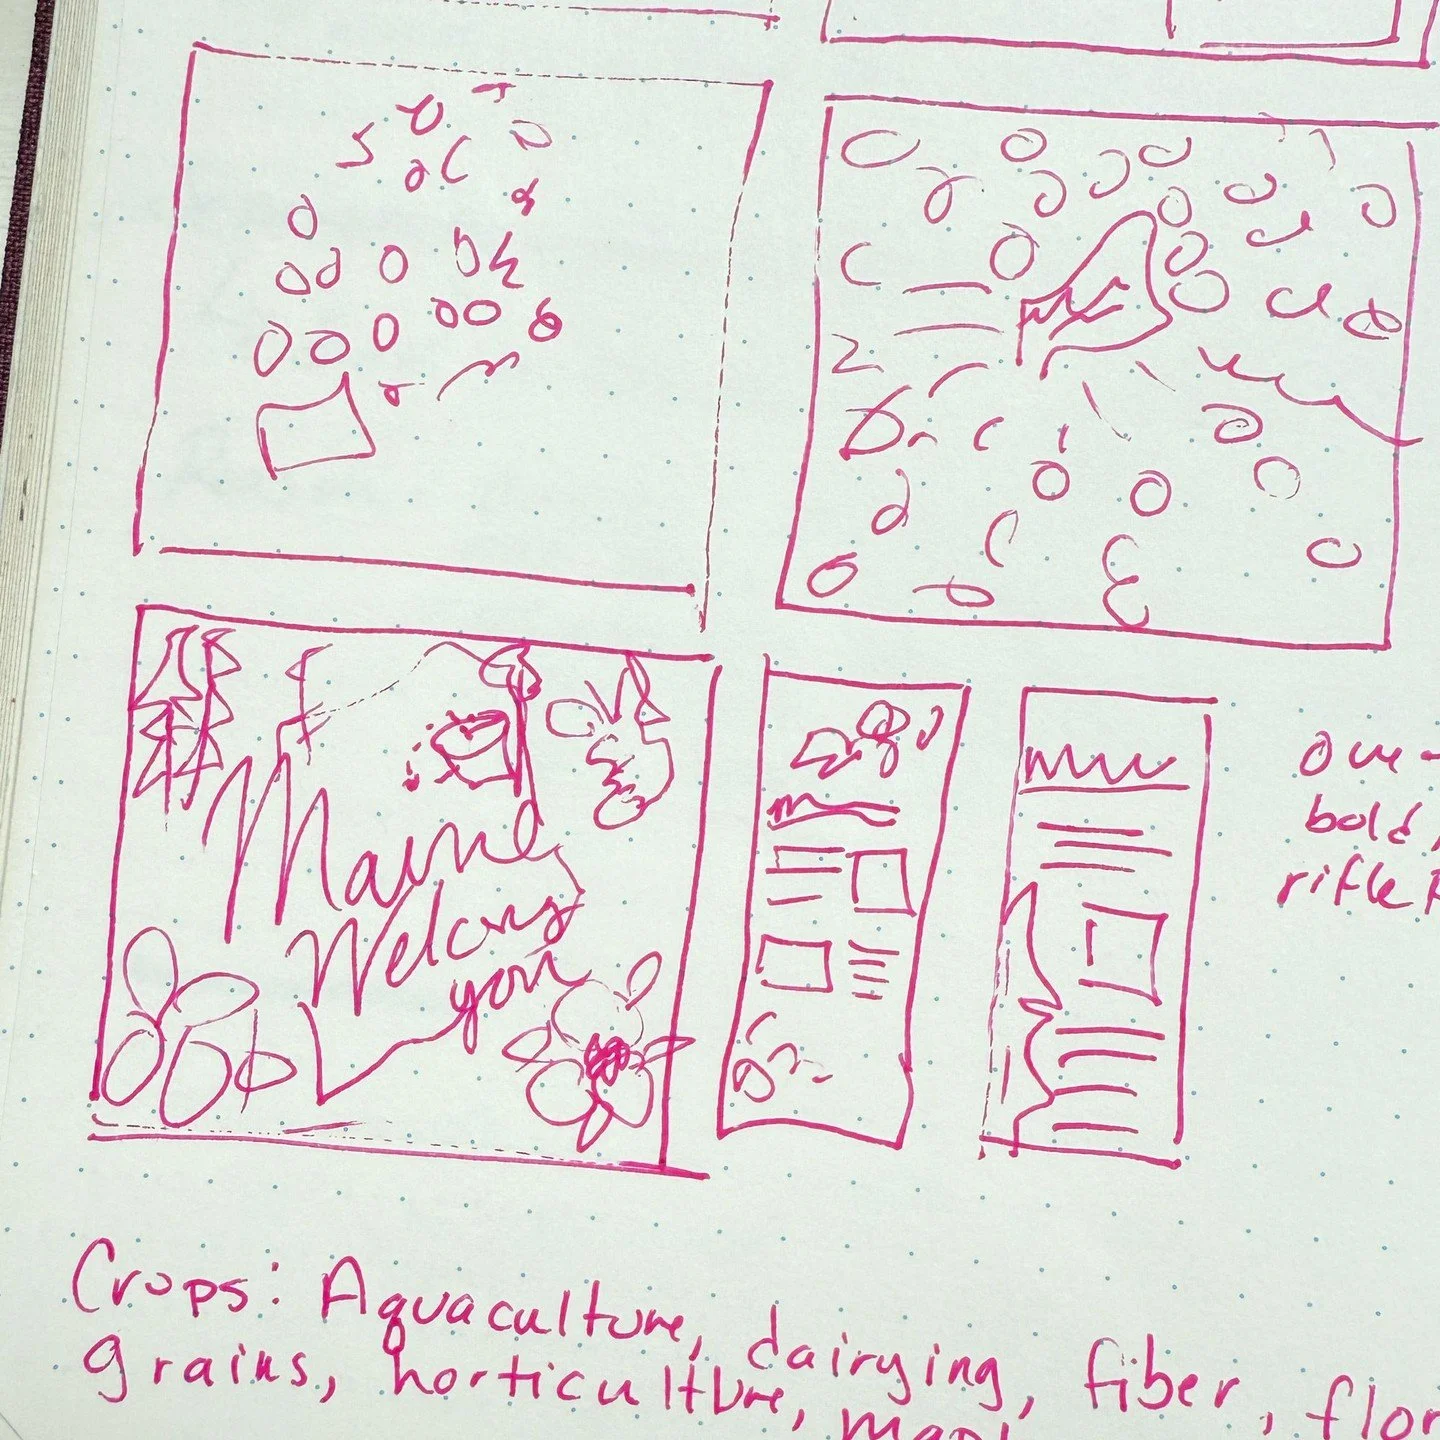 Maine
Welcomes
you
bold,
Crops: Aquaculture, dairying, fiber, flor
grains, horticulture, mapl